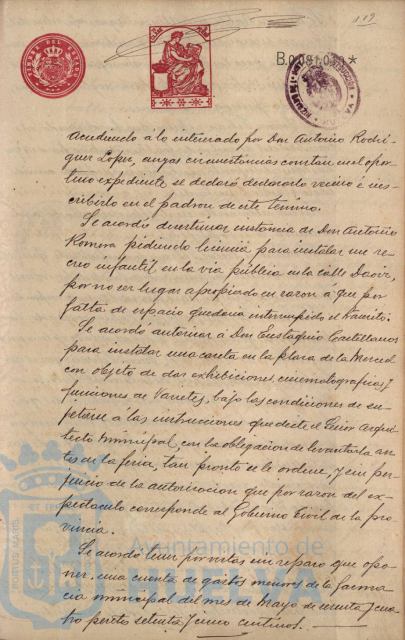 119
TIMBRE DEL ESTADO
B.0.081.030 *
Accediendo á lo interesado por Don Antonio Rodri-
guez Lopez, cuyas circunstancias constan en el opor-
tuno expediente se declaró declararlo vecino é ins-
cribirlo en el padron de este termino.
Se acordó desestimar instancia de Don Antonio
Romero pidiendo licencia para instalar un re-
creo infantil en la via pública en la calle Daoiz,
por no ser lugar apropiado en razon á que por
falta de espacio quedaria interrumpido el transito.
Se acordó autorizar á Don Eustaquio Castellanos
para instalar una caseta en la plaza de la Merced
con objeto de dar exhibiciones cinematograficas y
funciones de Varietés, bajo las condiciones de su-
jetarse á las instrucciones que dicte el Señor Arqui-
tecto Municipal, con la obligacion de levantarla an-
tes de la feria, tan pronto se le ordene, y sin per-
juicio de la autorizacion que por razon del es-
pectaculo corresponde al Gobierno Civil de la pro-
vincia.
Se acordó tener por vistas sin reparo que opo-
ner, una cuenta de gastos menores de la farma-
cia municipal del mes de Mayo de setenta y cua-
tro pesetas setenta y cinco centimos.
PORTUS MARIS
Ayuntamiento de
HUELVA